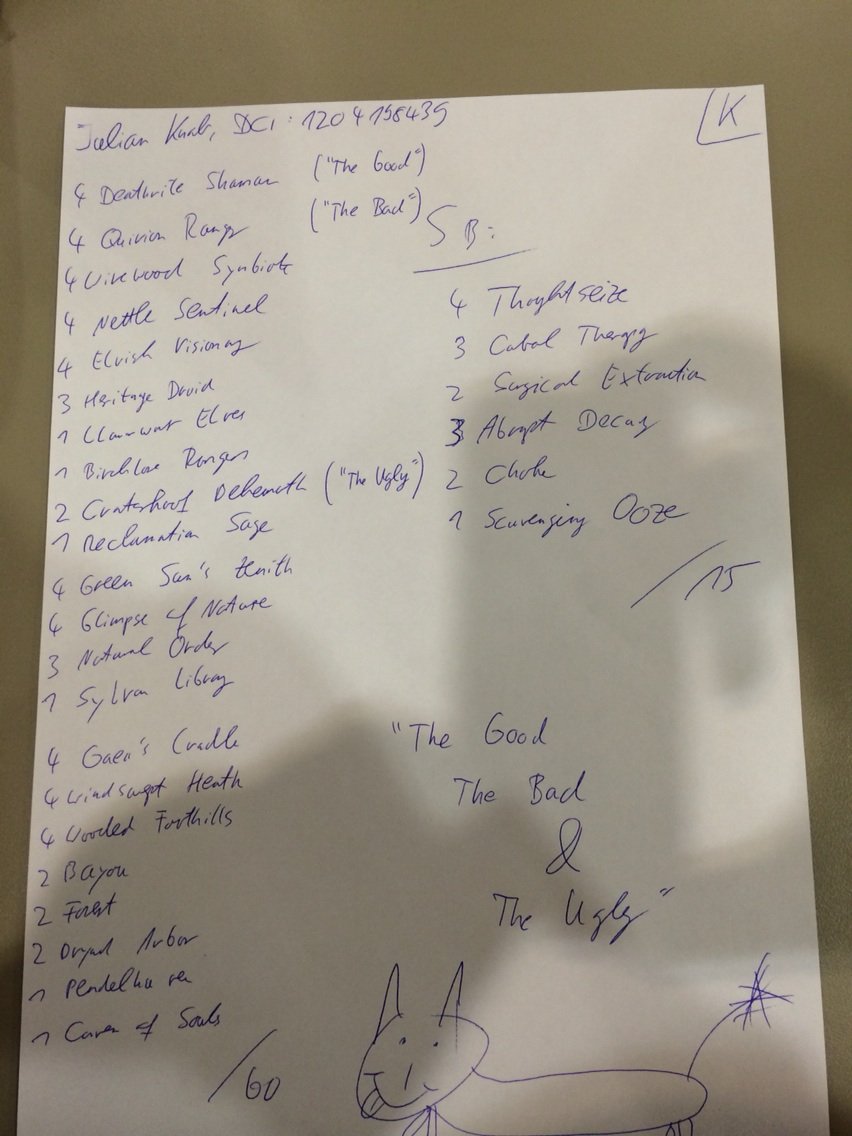 Julian Knab, DCI: 1204158435
K
4 Deathrite Shaman ("The Good")
4 Quirion Ranger ("The Bad")
4 Wirewood Symbiote
4 Nettle Sentinel
4 Elvish Visionary
3 Heritage Druid
1 Llanowar Elves
1 Birchlore Ranger
2 Craterhoof Behemoth ("The Ugly")
1 Reclamation Sage
4 Green Sun's Zenith
4 Glimpse of Nature
3 Natural Order
1 Sylvan Library
4 Gaea's Cradle
4 Windswept Heath
4 Wooded Foothills
2 Bayou
2 Forest
2 Dryad Arbor
1 Pendelhaven
1 Cavern of Souls
/60
SB:
4 Thoughtseize
3 Cabal Therapy
2 Surgical Extraction
3 Abrupt Decay
2 Choke
1 Scavenging Ooze
/15
"The Good
The Bad
&
The Ugly"